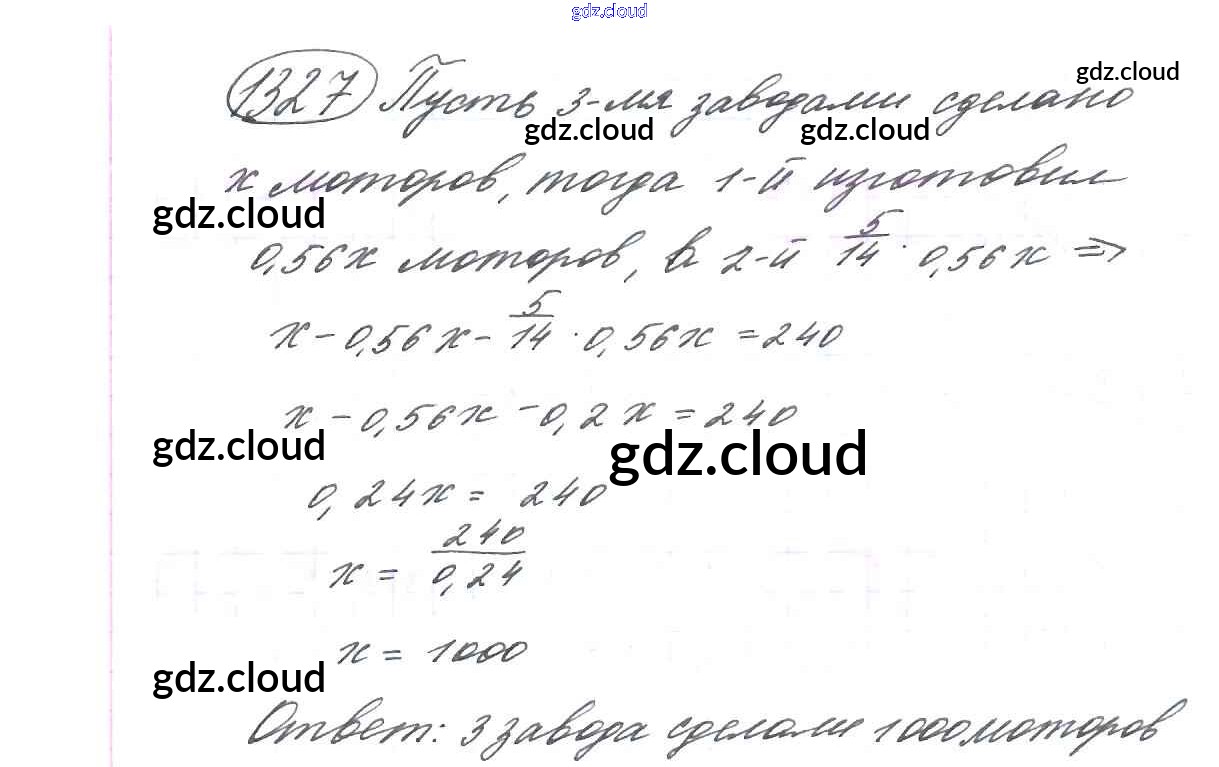 gdz.cloud
1327 Пусть 3-мя заводами сделано
gdz.cloud
gdz.cloud gdz.cloud
x моторов, тогда 1-й изготовил
gdz.cloud
0,56x моторов, а 2-й 5/14 · 0,56x ⇒
x - 0,56x - 5/14 · 0,56x = 240
x - 0,56x - 0,2x = 240
gdz.cloud gdz.cloud
0,24x = 240
x = 240/0,24
x = 1000
gdz.cloud
Ответ: 3 завода сделали 1000 моторов